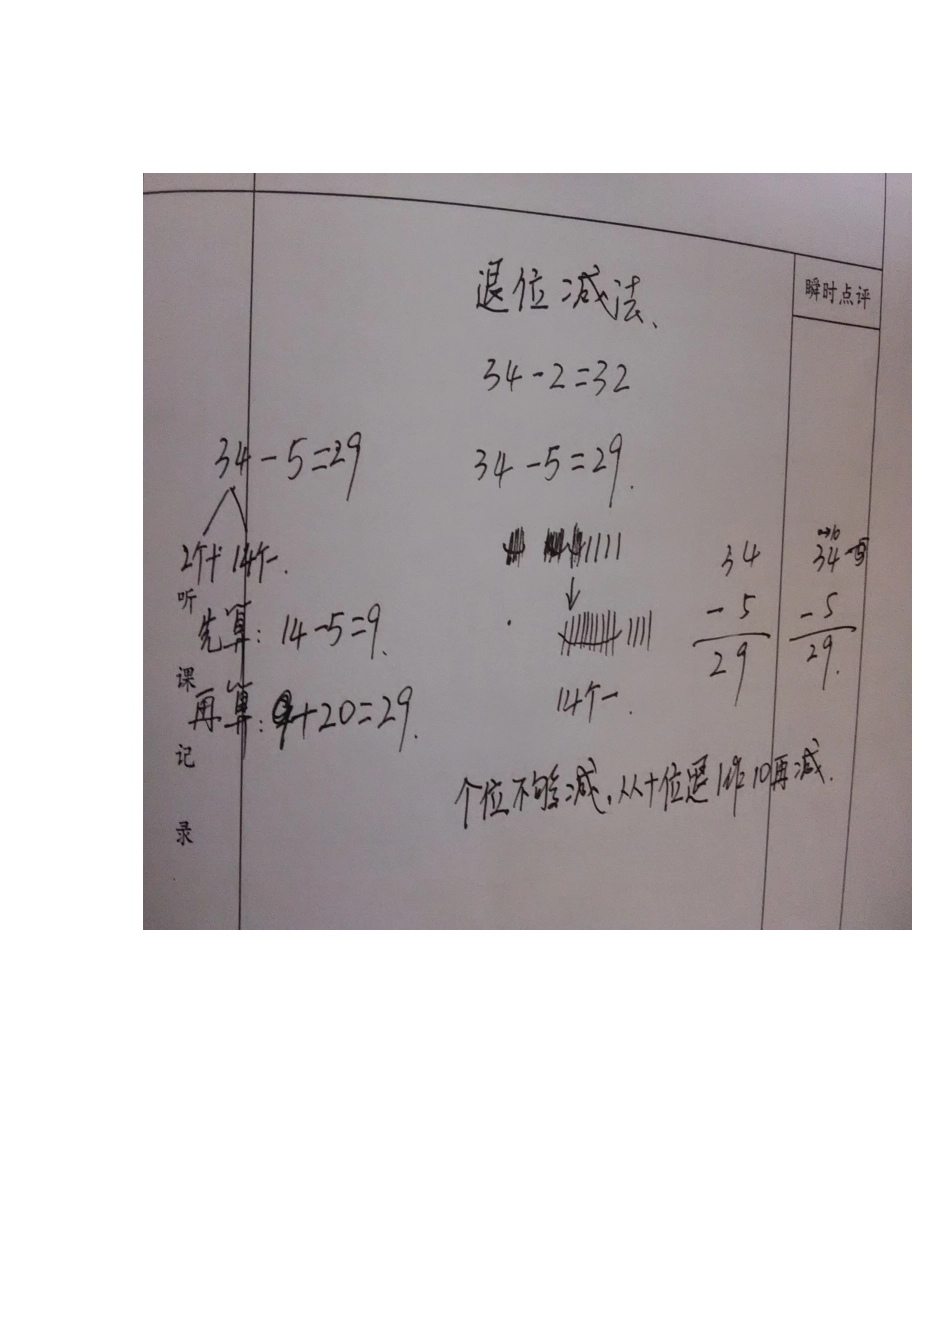 退位减法、
瞬时点评
34-2=32
34-5=29
34-5=29.
2个十 14个一.
先算: 14-5=9.
再算: 9+20=29.
14个一.
34
-5
29
10
34
-5
29.
个位不够减,从十位退1作10再减.
听课记录